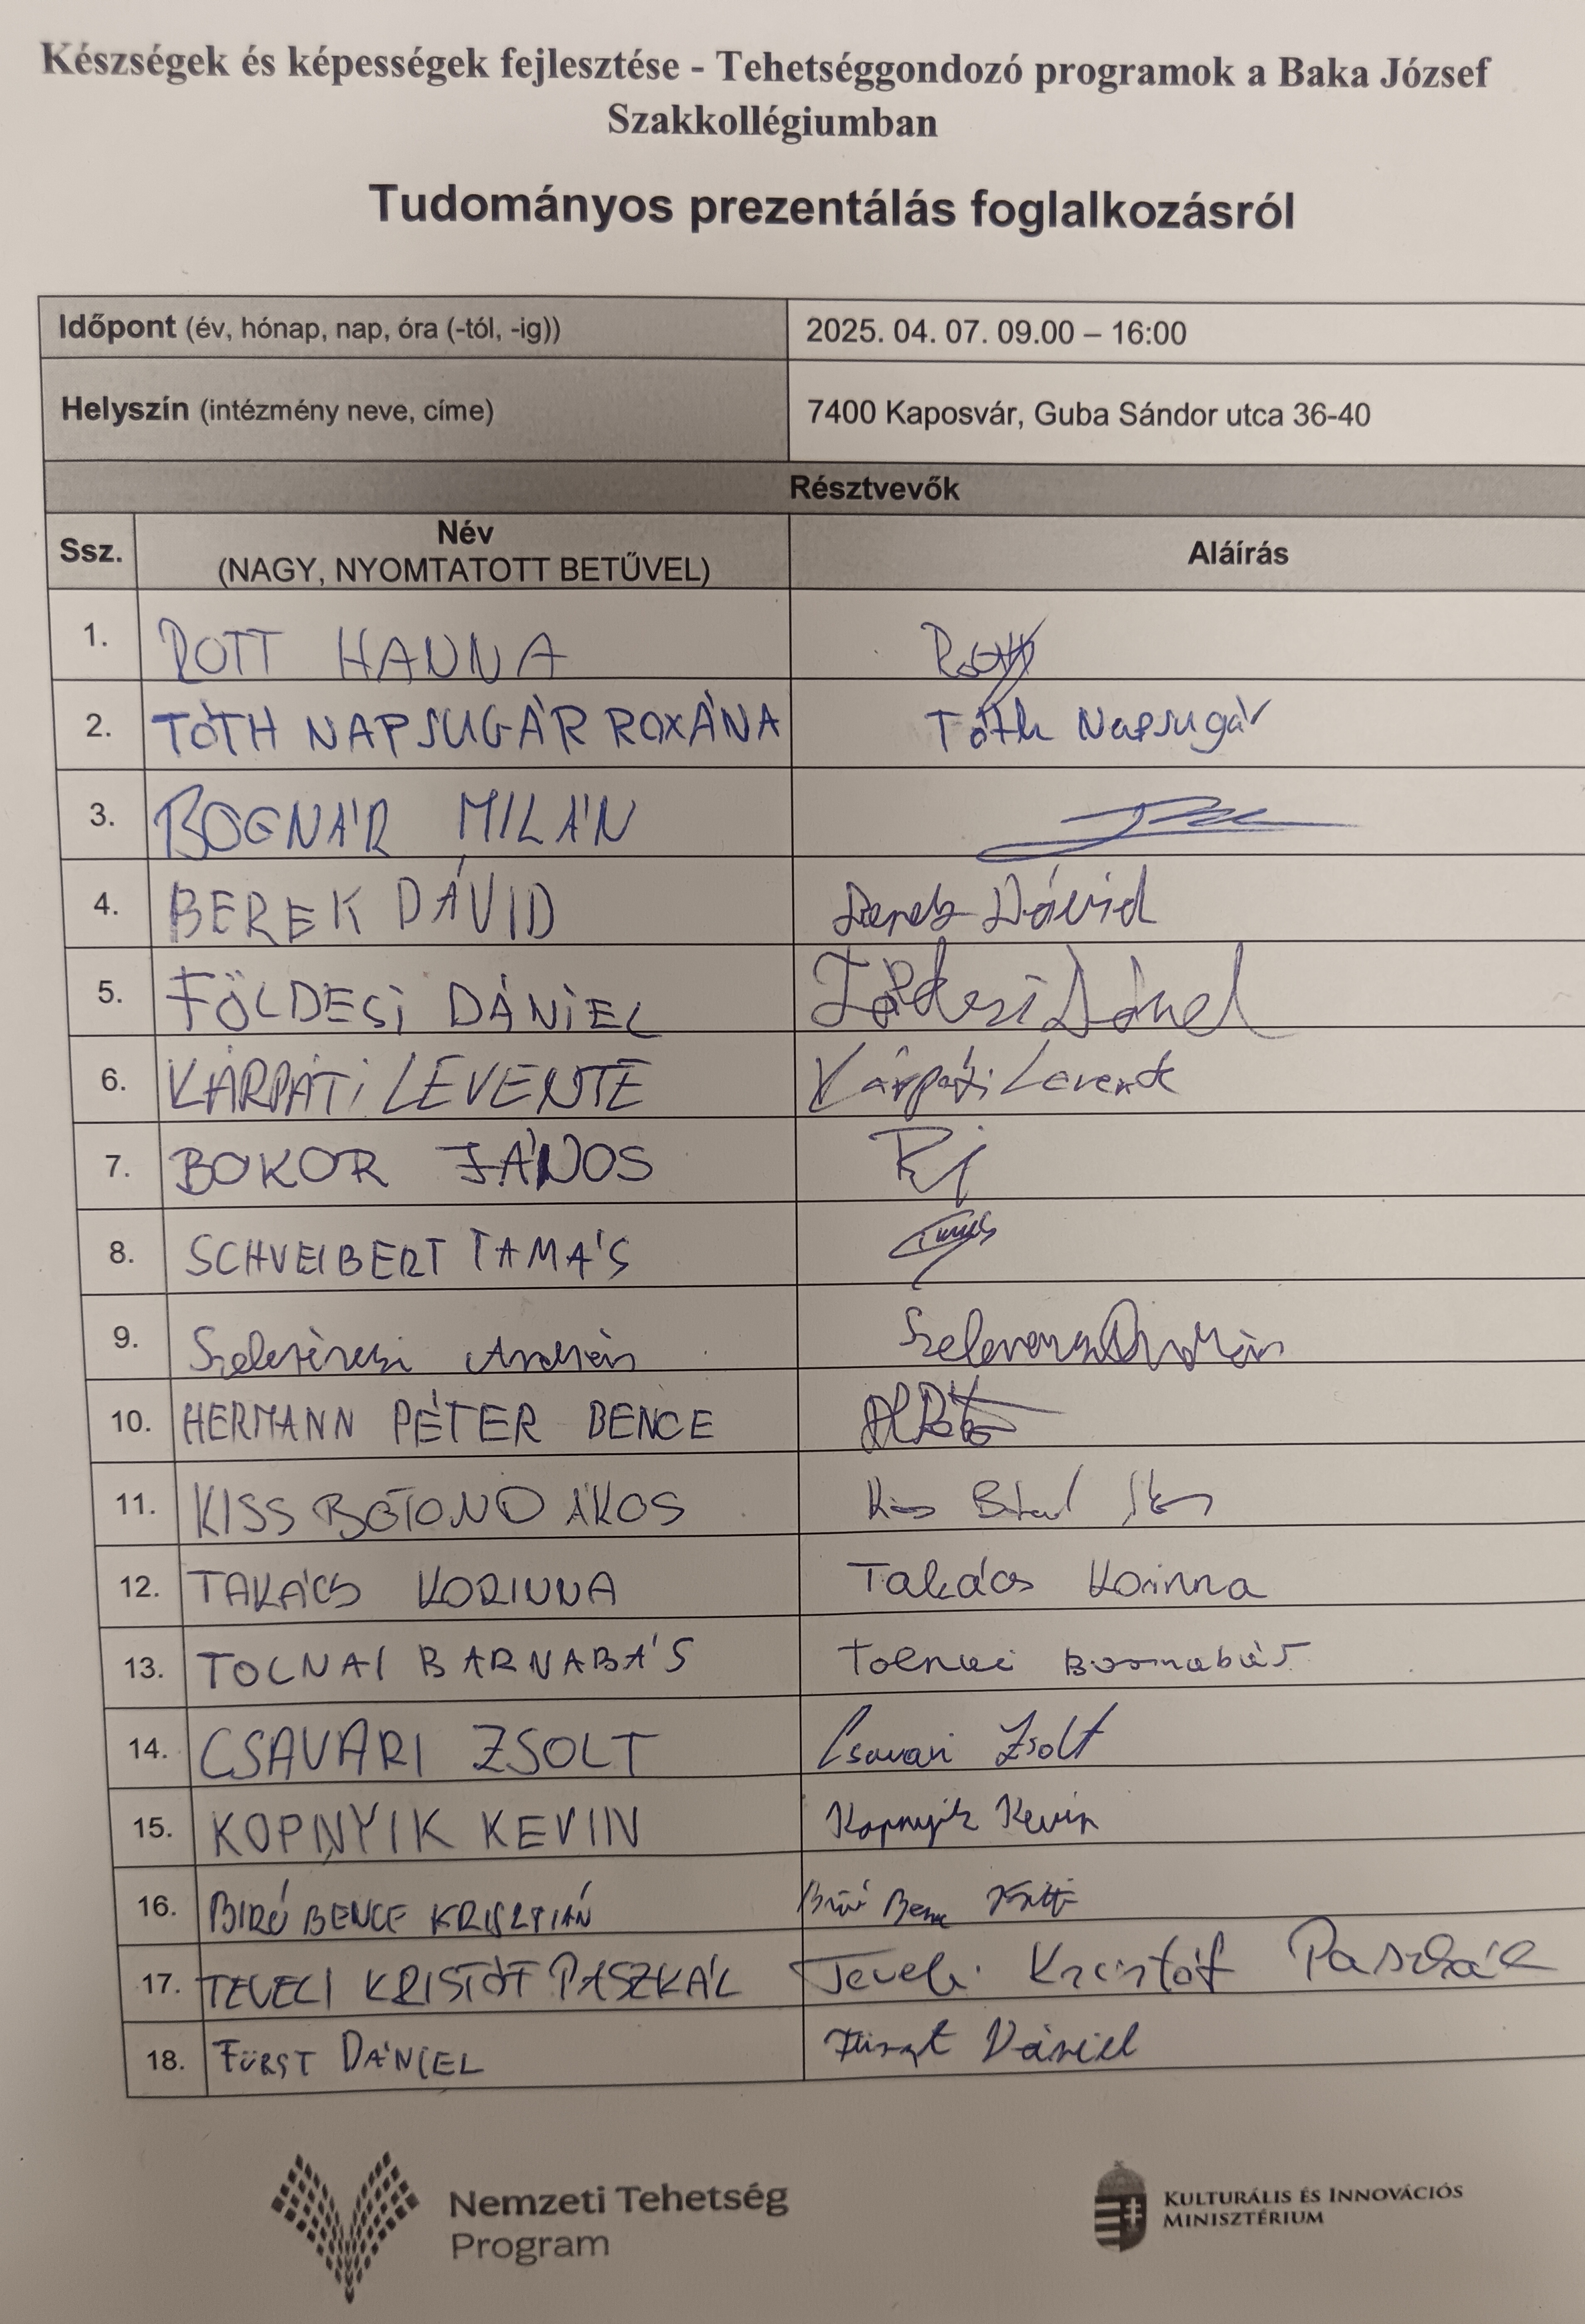 Készségek és képességek fejlesztése - Tehetséggondozó programok a Baka József
Szakkollégiumban
Tudományos prezentálás foglalkozásról
Időpont (év, hónap, nap, óra (-tól, -ig)) 2025. 04. 07. 09.00 – 16:00
Helyszín (intézmény neve, címe) 7400 Kaposvár, Guba Sándor utca 36-40
Résztvevők
Ssz. Név (NAGY, NYOMTATOTT BETŰVEL) Aláírás
1. ROTT HANNA
2. TÓTH NAPSUGÁR ROXÁNA Tóth Napsugár
3. BOGNÁR MILÁN
4. BEREK DÁVID Berek Dávid
5. FÖLDESI DÁNIEL Földesi Dániel
6. KÁRPÁTI LEVENTE Kárpáti Levente
7. BOKOR JÁNOS
8. SCHVEIBERT TAMÁS
9.
10. HERMANN PÉTER BENCE
11. KISS BOTOND ÁKOS Kiss Botond Ákos
12. TAKÁCS KORINNA Takács Korinna
13. TOLNAI BARNABÁS Tolnai Barnabás
14. CSAVARI ZSOLT Csavari Zsolt
15. KOPNYIK KEVIN Kopnyik Kevin
16. BIRÓ BENCE KRISZTIÁN Biró Bence
17. TEVELI KRISTÓF PASZKÁL Teveli Kristóf Paszkál
18. FÜRST DÁNIEL Fürst Dániel
Nemzeti Tehetség
Program
KULTURÁLIS ÉS INNOVÁCIÓS
MINISZTÉRIUM